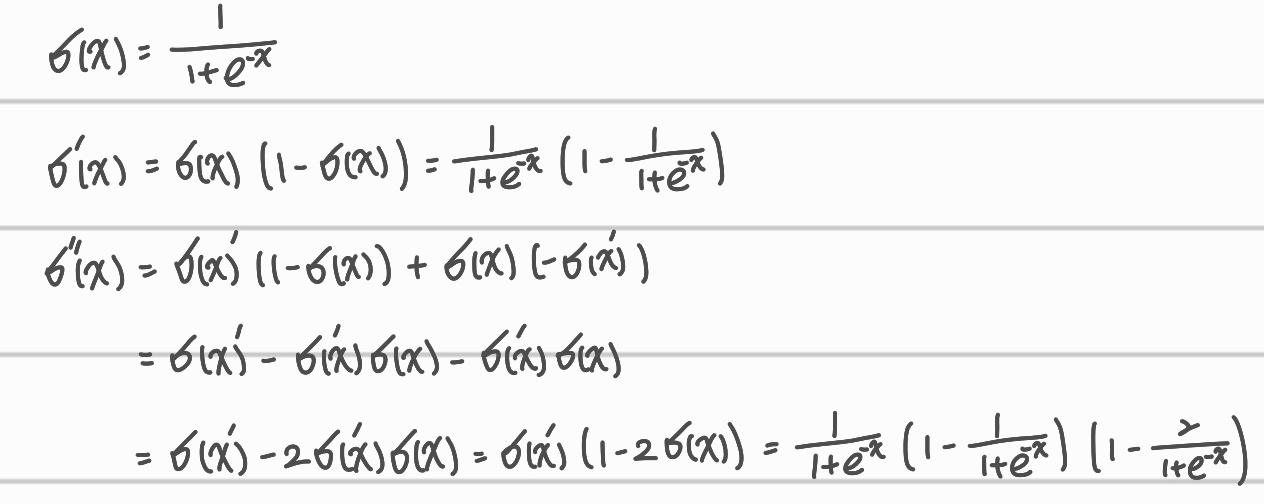 σ(x) = 1/(1+e^{-x})
σ'(x) = σ(x) (1-σ(x)) = 1/(1+e^{-x}) (1 - 1/(1+e^{-x}))
σ''(x) = σ(x)' (1-σ(x)) + σ(x) (-σ(x)')
= σ(x)' - σ(x)'σ(x) - σ(x)'σ(x)
= σ(x)' - 2σ(x)'σ(x) = σ(x)' (1-2σ(x)) = 1/(1+e^{-x}) (1 - 1/(1+e^{-x})) (1 - 2/(1+e^{-x}))